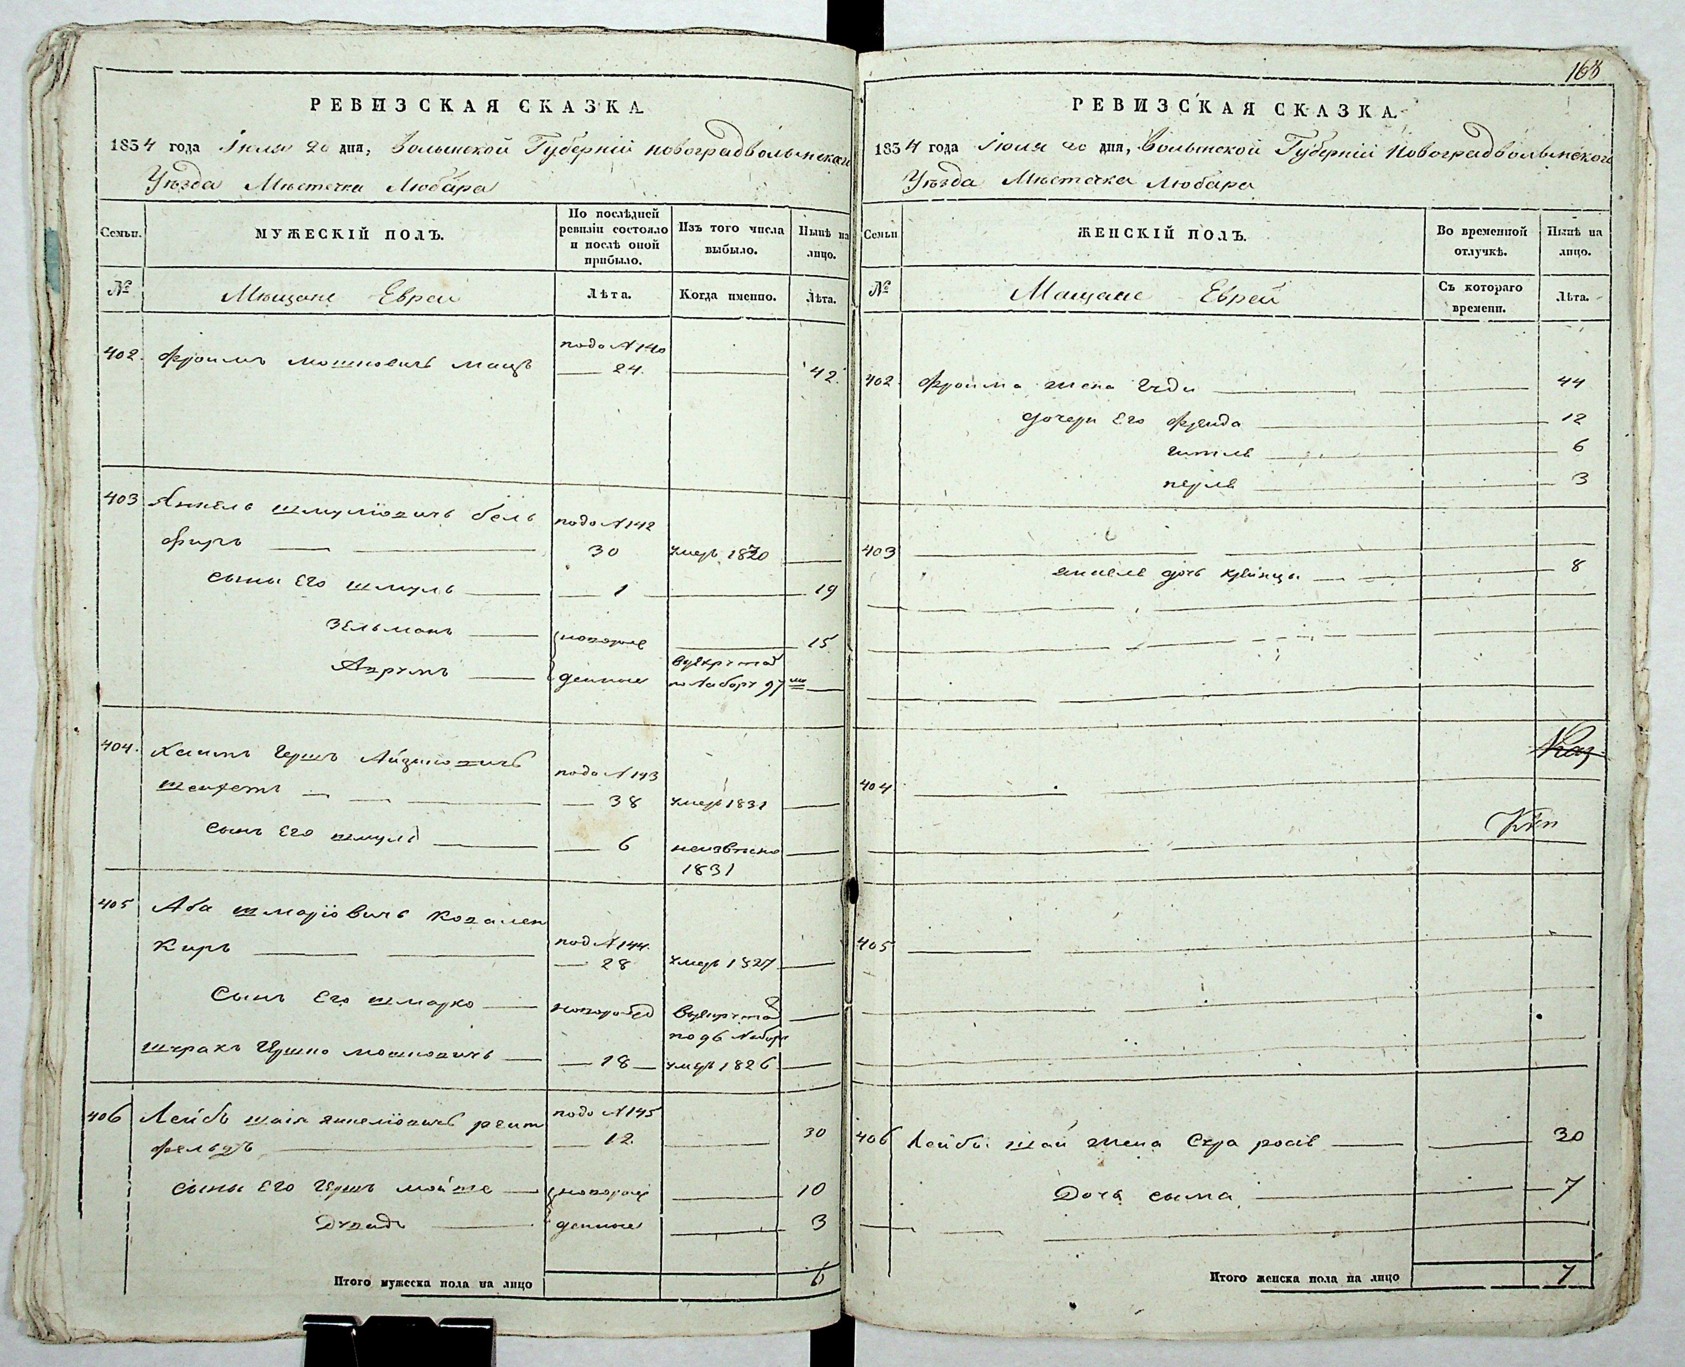 РЕВИЗСКАЯ СКАЗКА.
1834 года Июля 20 дня, Волынской Губерніи Новоградволынскаго
Уѣзда Мѣстечка Любара
Семьи.
МУЖЕСКІЙ ПОЛЪ.
По послѣдней ревизіи состояло и послѣ оной прибыло.
Изъ того числа выбыло.
Нынѣ на лицо.
№
Мѣщане Евреи
Лѣта.
Когда именно.
Лѣта.
402. Фроимъ Мошковичъ подъ N 140
24 42.
403 Янкель Шмулiовичъ Бель подъ N 142
фиръ 30 умеръ 1830
сыны Его Шмуль 1 19
Зельманъ новорож 15
Аврумъ денные Врекруты
по Набору 97
404. Хаимъ Гершъ Айзиковичъ подъ N 143
38 умеръ 1831
сынъ Его Шмуль 6 неизвѣстно
1831
405 Аба Шмарiовичъ Ковален
керъ подъ N 144. 28 умеръ 1827
Сынъ Его Шмарко новорожд Врекруты
по 96 Набору
Гершко Мошковичъ 18 умеръ 1826
406 Лейбъ Шаiя Янкелiовичъ подъ N 145
12 30
сыны Его Гершъ Мойше новорож 10
Дувидъ денные 3
Итого мужеска пола на лицо 6
163
РЕВИЗСКАЯ СКАЗКА.
1834 года Июля 20 дня, Волынской Губерніи Новоградволынскаго
Уѣзда Мѣстечка Любара
Семьи
ЖЕНСКІЙ ПОЛЪ.
Во временной отлучкѣ.
Нынѣ на лицо.
№
Мѣщане Евреи
Съ котораго времени.
Лѣта.
402. Фроима жена 44
дочери Его Фрейда 12
Гитля 6
Перля 3
403
Янкеля дочь Крейнцы 8
404
405
406 Лейбы Шаи жена Сура 30
Дочь Сима 7
Итого женска пола на лицо 7